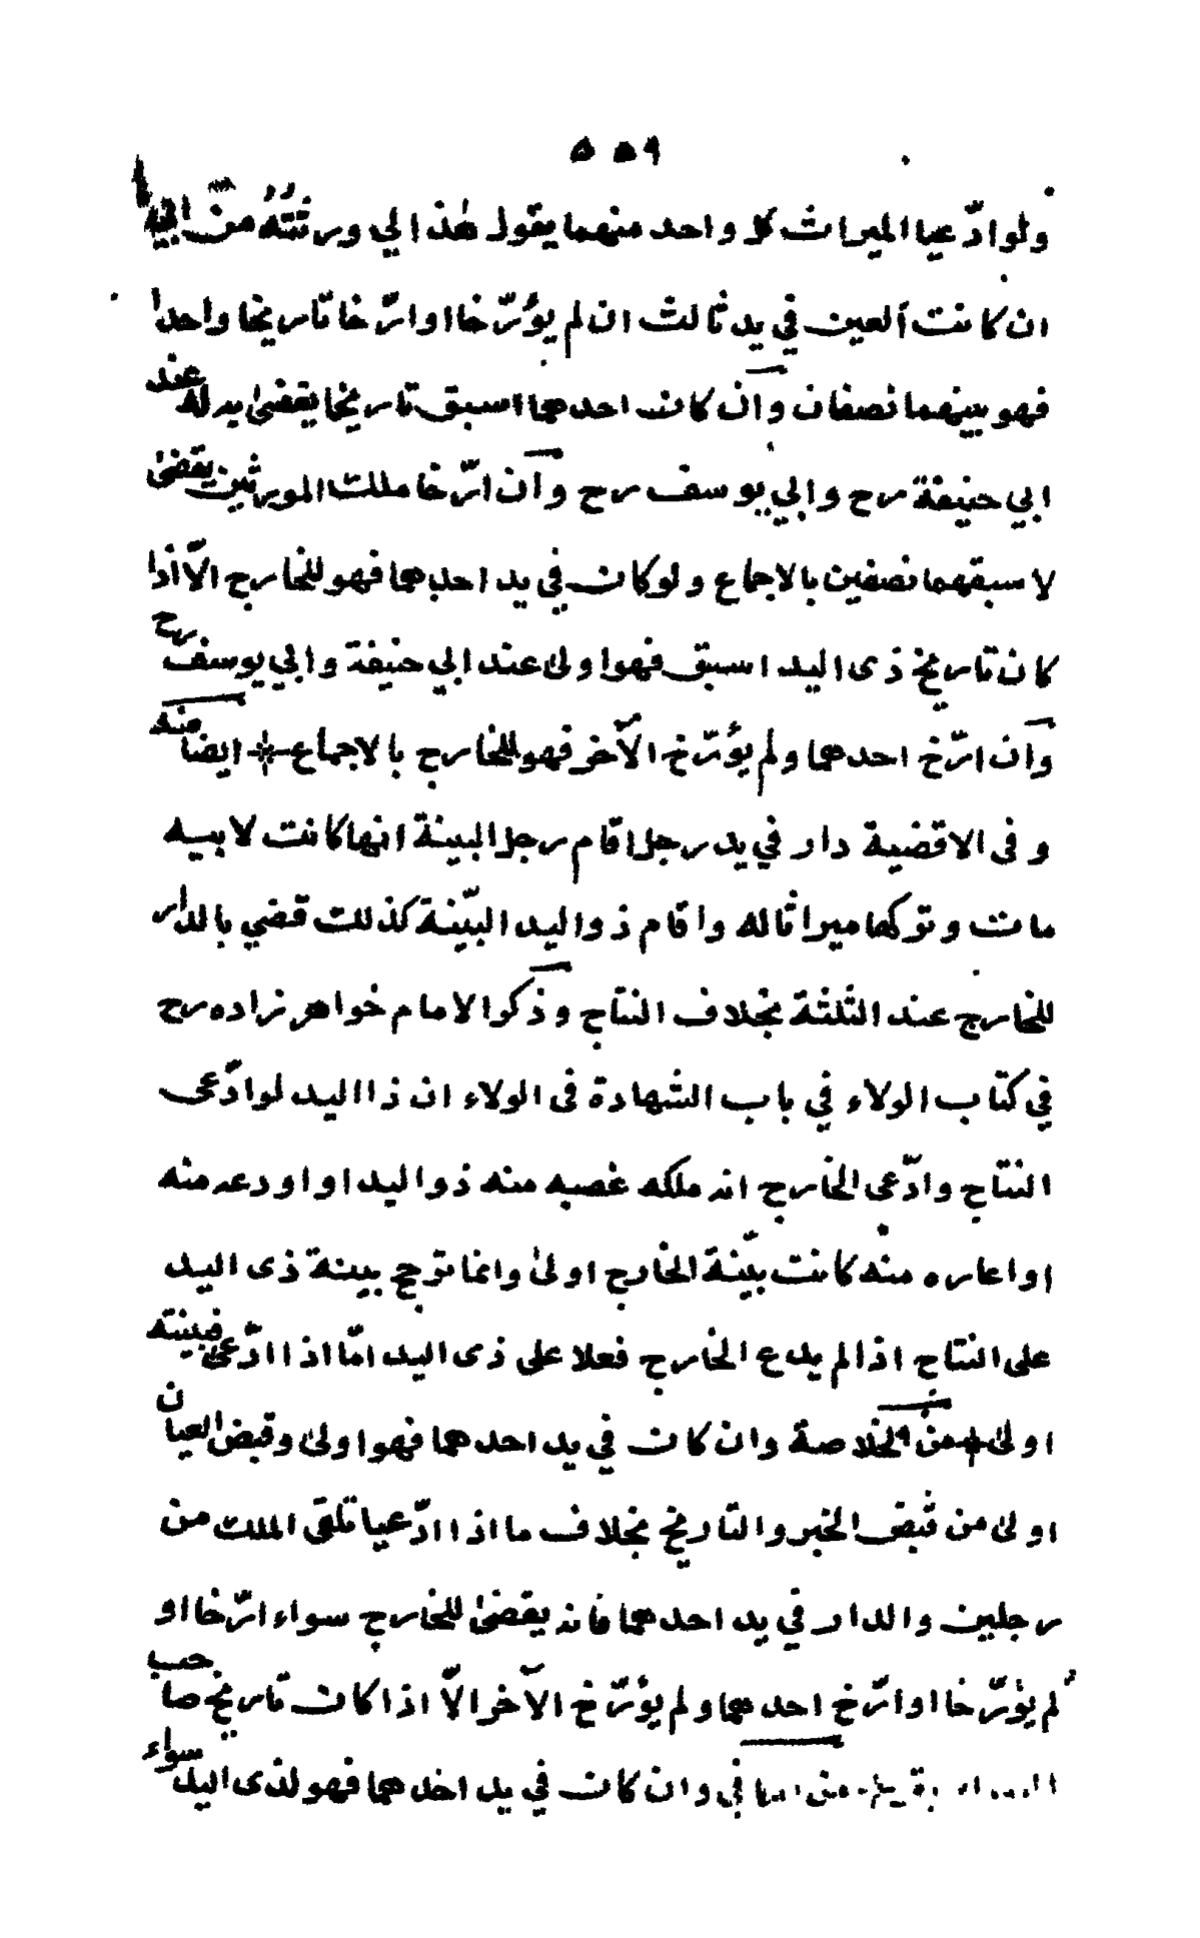 ٥٥٩
ولو ادّعيا الميراث كل واحد منهما يقول هٰذا لي ورثتُهُ من ابيه
ان كانت العين في يد ثالث ان لم يؤرّخا او ارّخا تاريخا واحدا
فهو بينهما نصفان وان كان احدهما اسبق تاريخا يقضىٰ به له عند
ابي حنيفة رح وابي يوسف رح وان ارّخا ملك المورثين يقضىٰ
لاسبقهما نصفين بالاجماع ولو كان في يد احدهما فهو للخارج الاّ اذا
كان تاريخ ذى اليد اسبق فهو اولىٰ عند ابي حنيفة وابي يوسف رح
وان ارّخ احدهما ولم يؤرّخ الآخر فهو للخارج بالاجماع ايضا منه
وفى الاقضية دار في يد رجل اقام رجل البينة انها كانت لابيه
مات وتركها ميراثا له واقام ذو اليد البيّنة كذلك قضي بالدار
للخارج عند الثلثة بخلاف النتاج وذكر الامام خواهر زاده رح
في كتاب الولاء في باب الشهادة فى الولاء ان ذا اليد لو ادّعى
النتاج وادّعى الخارج انه ملكه غصبه منه ذو اليد او اودعه منه
او اعاره منه كانت بيّنة الخارج اولىٰ وانما ترجح بينة ذى اليد
على النتاج اذا لم يدع الخارج فعلا على ذى اليد امّا اذا ادّعى فبينته
اولىٰ من الخلاصة وان كان في يد احدهما فهو اولىٰ وقبض العيان
اولىٰ من قبض الخبر والتاريخ بخلاف ما اذا ادّعيا تلقى الملك من
رجلين والدار في يد احدهما فانه يقضىٰ للخارج سواء ارّخا او
لم يؤرّخا او ارّخ احدهما ولم يؤرّخ الآخر الاّ اذا كان تاريخ صاحب
من الكافي وان كان في يد احدهما فهو لذى اليد سواء